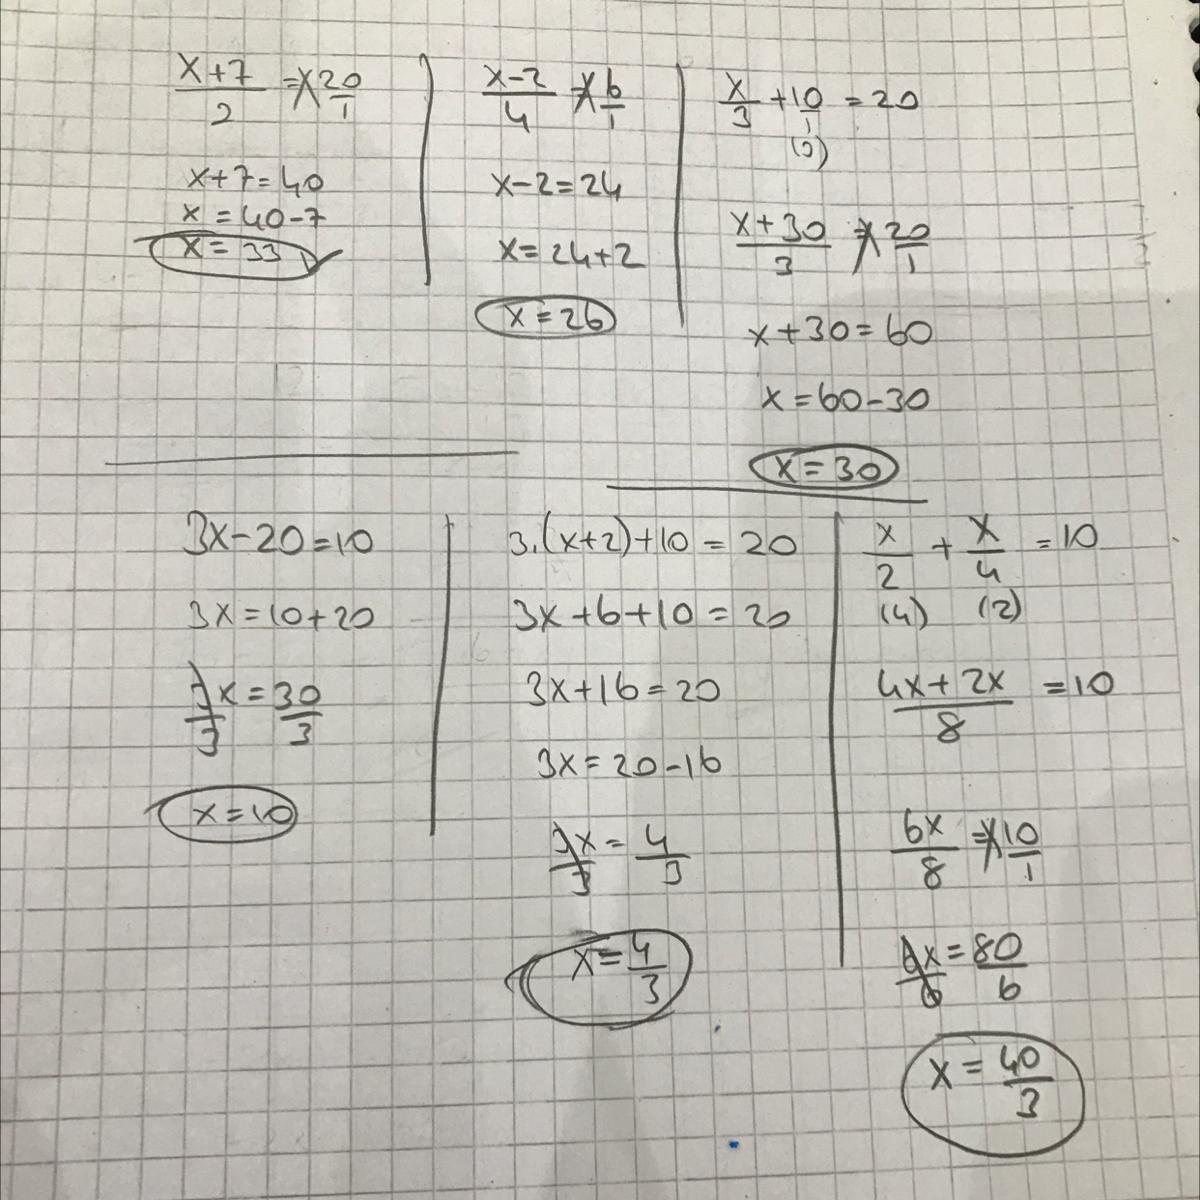 x+7/2 = 20/1
x+7=40
x=40-7
x=33
x-2/4 = 6/1
x-2=24
x=24+2
x=26
x/3 + 10/1 = 20
(3)
x+30/3 = 20/1
x+30=60
x=60-30
x=30
3x-20=10
3x=10+20
3x/3=30/3
x=10
3.(x+2)+10=20
3x+6+10=20
3x+16=20
3x=20-16
3x/3=4/3
x=4/3
x/2 + x/4 = 10
(4) (2)
4x+2x/8 = 10
6x/8 = 10/1
6x/6=80/6
x=40/3